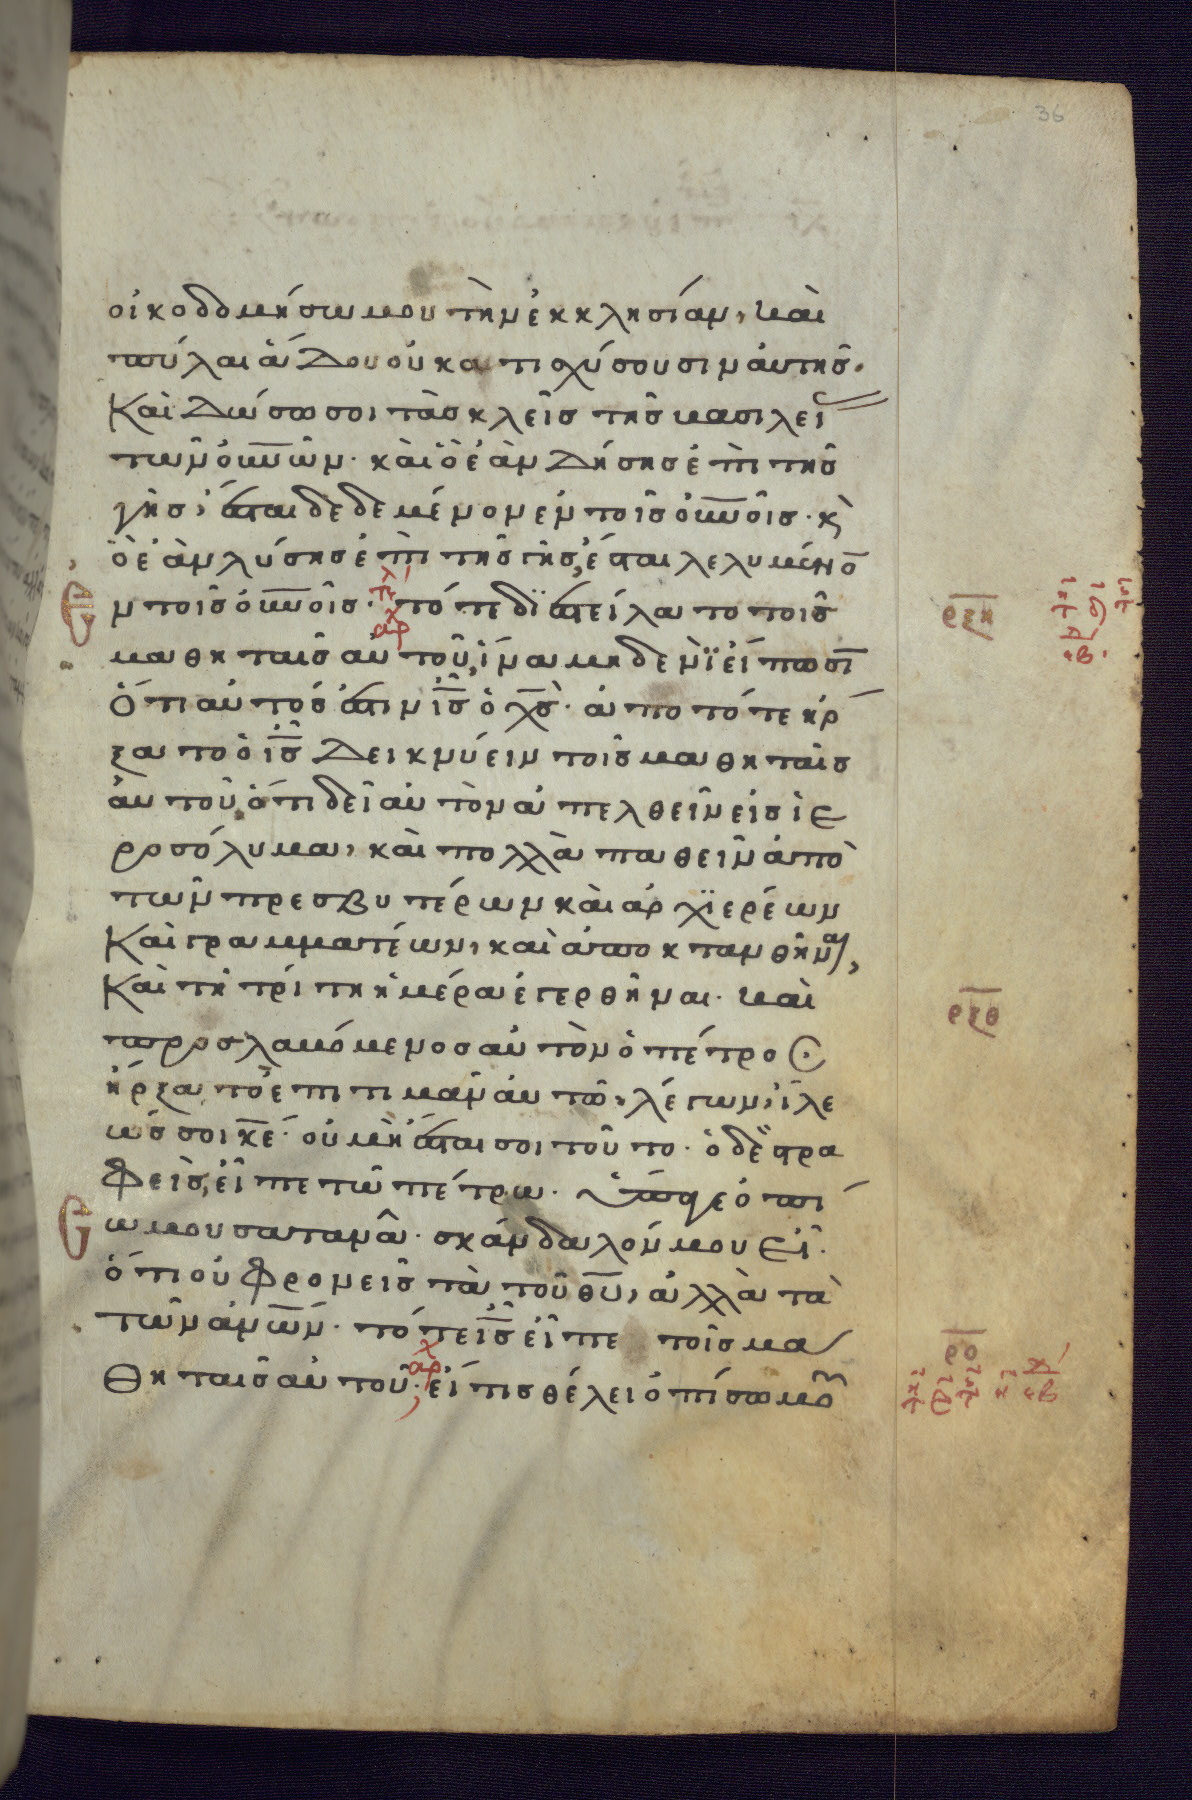 36
οἰκοδομήσω μου τὴν ἐκκλησίαν, καὶ
πύλαι ἅδου οὐ κατισχύσουσιν αὐτῆς.
Καὶ δώσω σοι τὰς κλεῖς τῆς βασιλεί
τῶν οὐνῶν. καὶ ὃ ἐὰν δήσης ἐπὶ τῆς
γῆς, ἔσται δεδεμένον ἐν τοῖς οὐνοῖς. κ̀
ὃ ἐὰν λύσης ἐπὶ τῆς γῆς, ἔσται λελυμένο̄
ἐν τοῖς οὐνοῖς. τότε διεστείλατο τοῖς
ρξη
μαθηταῖς αὐτοῦ, ἵνα μηδενὶ εἴπωσῑ
Ὅτι αὐτός ἐστιν ἰς̄ ὁ χς̄. ἀπὸ τότε ἤρ
ξατο ὁ ἰς̄ δεικνύειν τοῖς μαθηταῖς
αὐτοῦ, ὅτι δεῖ αὐτὸν ἀπελθεῖν εἰς ἱε
ροσόλυμα, καὶ πολλὰ παθεῖν ἀπὸ
τῶν πρεσβυτέρων καὶ ἀρχιερέων
Καὶ γραμματέων, καὶ ἀποκτανθῆναι,
Καὶ τῆ τρίτη ἡμέρα ἐγερθῆναι. καὶ
ρξθ
προσλαβόμενος αὐτὸν ὁ πέτρος
ἤρξατο ἐπιτιμᾶν αὐτῶ, λέγων, ἵλε
ώς σοι κε̄. οὐ μὴ ἔσται σοι τοῦτο. ὁ δὲ στρα
φεὶς, εἶπε τῶ πέτρω. ὕπαγε ὀπί
σω μου σατανᾶ. σκάνδαλόν μου εἶ.
ὅτι οὐ φρονεῖς τὰ τοῦ θῡ, ἀλλὰ τὰ
τῶν ἀνων̄. τότε ἰς̄ εἶπε τοῖς μα
ρο
θηταῖς αὐτοῦ. εἴ τις θέλει ὀπίσω μου